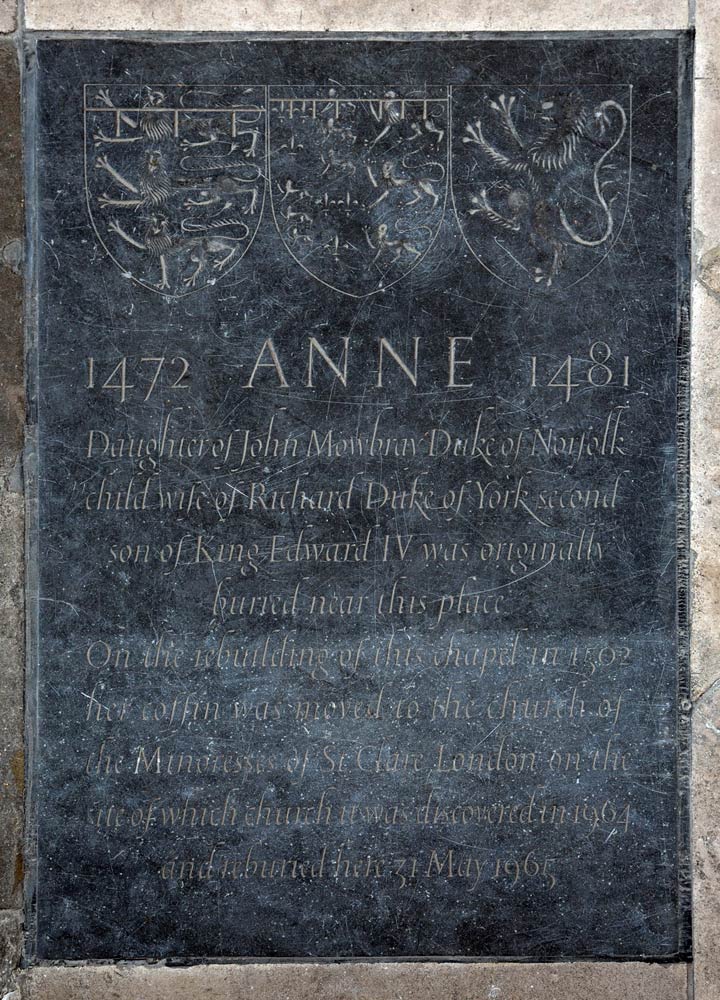 1472 ANNE 1481
Daughter of John Mowbray Duke of Norfolk
child wife of Richard Duke of York second
son of King Edward IV was originally
buried near this place
On the rebuilding of this chapel in 1502
her coffin was moved to the church of
the Minoresses of St Clare London on the
site of which church it was discovered in 1964
and reburied here 31 May 1965